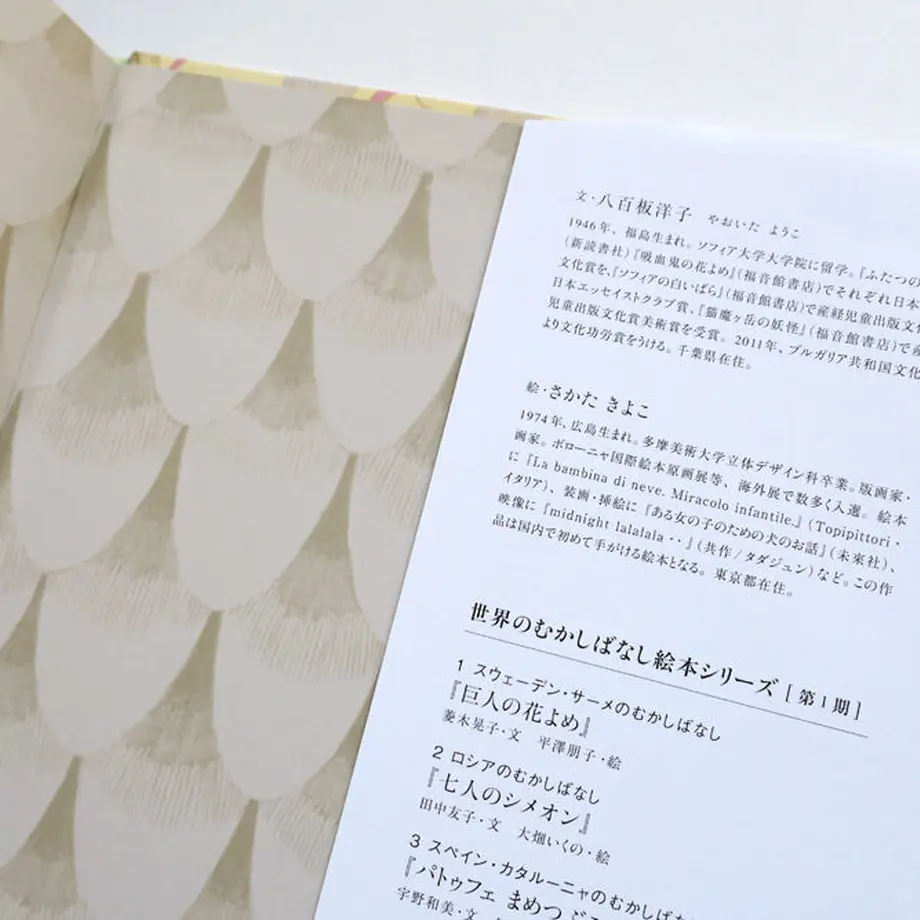 文・八百板洋子 やおいた ようこ
1946年、福島生まれ。ソフィア大学大学院に留学。『ふたつの
(新読書社)『吸血鬼の花よめ』(福音館書店)でそれぞれ日本
文化賞を、『ソフィアの白いばら』(福音館書店)で産経児童出版文化
日本エッセイストクラブ賞、『猫魔ヶ岳の妖怪』(福音館書店)で産
児童出版文化賞美術賞を受賞。2011年、ブルガリア共和国文化
より文化功労賞をうける。千葉県在住。
絵・さかた きよこ
1974年、広島生まれ。多摩美術大学立体デザイン科卒業。版画家・
画家。ボローニャ国際絵本原画展等、海外展で数多く入選。絵本
に『La bambina di neve. Miracolo infantile.』(Topipittori・
イタリア)、装画・挿絵に『ある女の子のための犬のお話』(未來社)、
映像に『midnight lalalala・・』(共作/タダジュン)など。この作
品は国内で初めて手がける絵本となる。東京都在住。
世界のむかしばなし絵本シリーズ[第1期]
1 スウェーデン・サーメのむかしばなし
『巨人の花よめ』
菱木晃子・文 平澤朋子・絵
2 ロシアのむかしばなし
『七人のシメオン』
田中友子・文 大畑いくの・絵
3 スペイン・カタルーニャのむかしばなし
『パトゥフェ まめつ
宇野和美・文